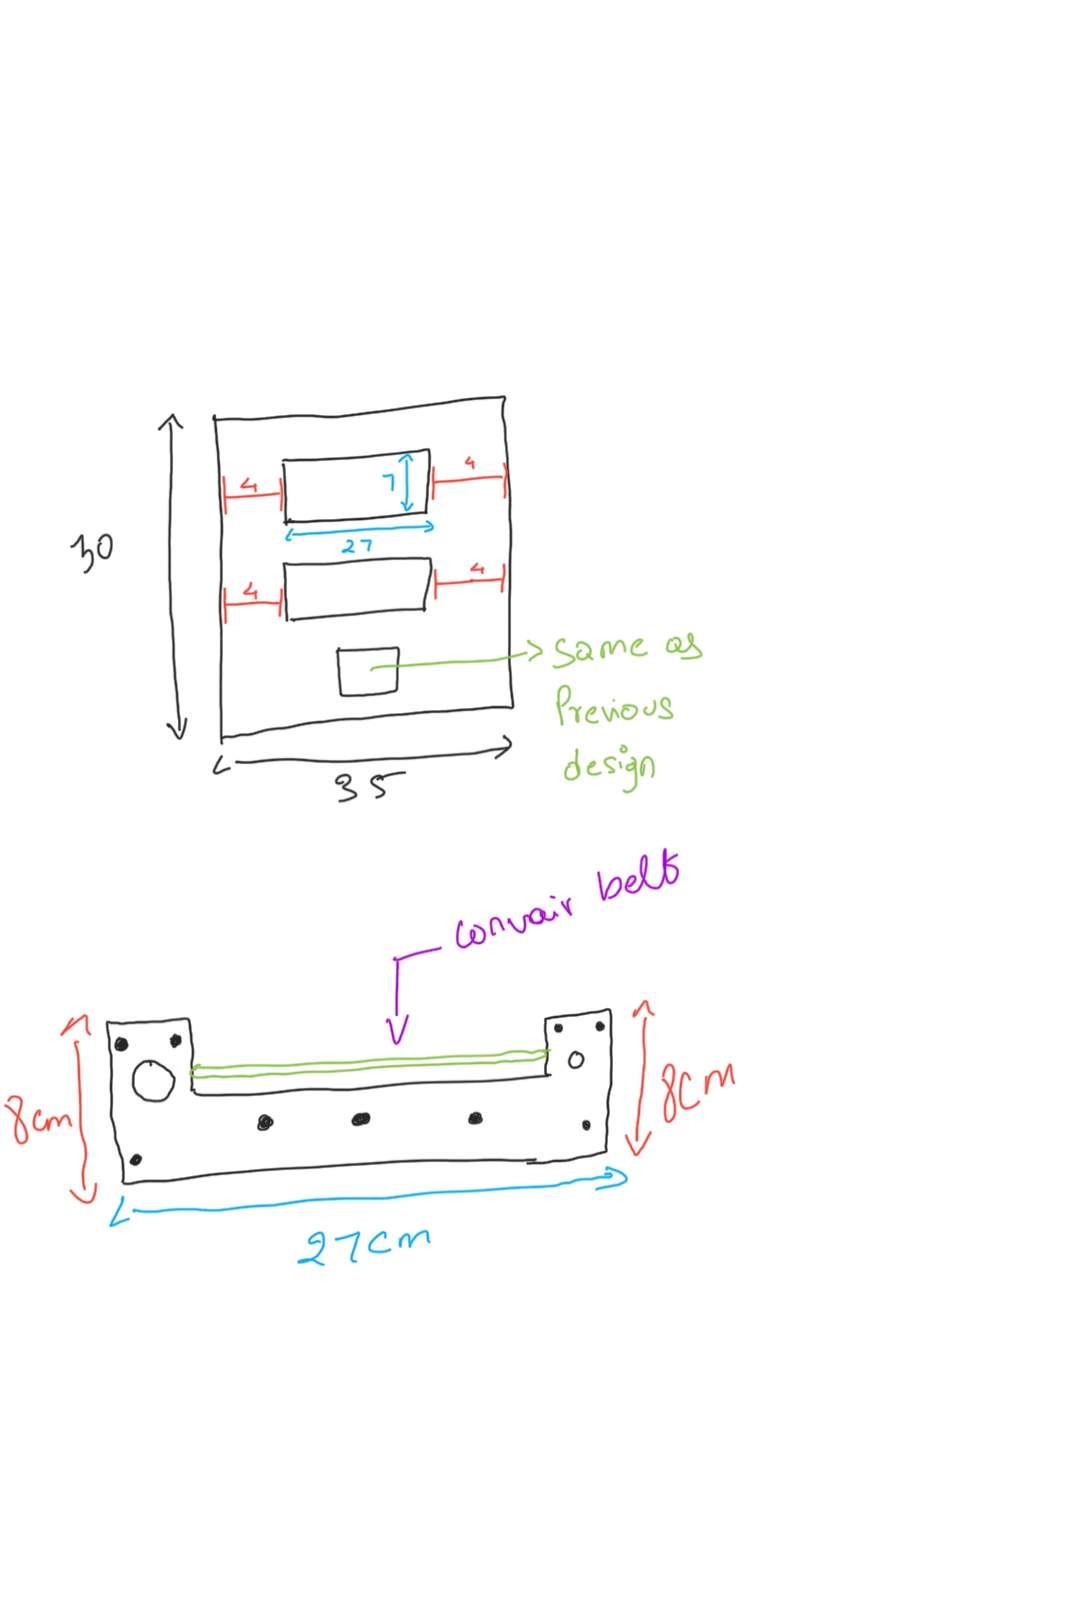 4
7
4
27
30
4
4
Same as
Previous
design
35
convair belt
8cm
8cm
27cm